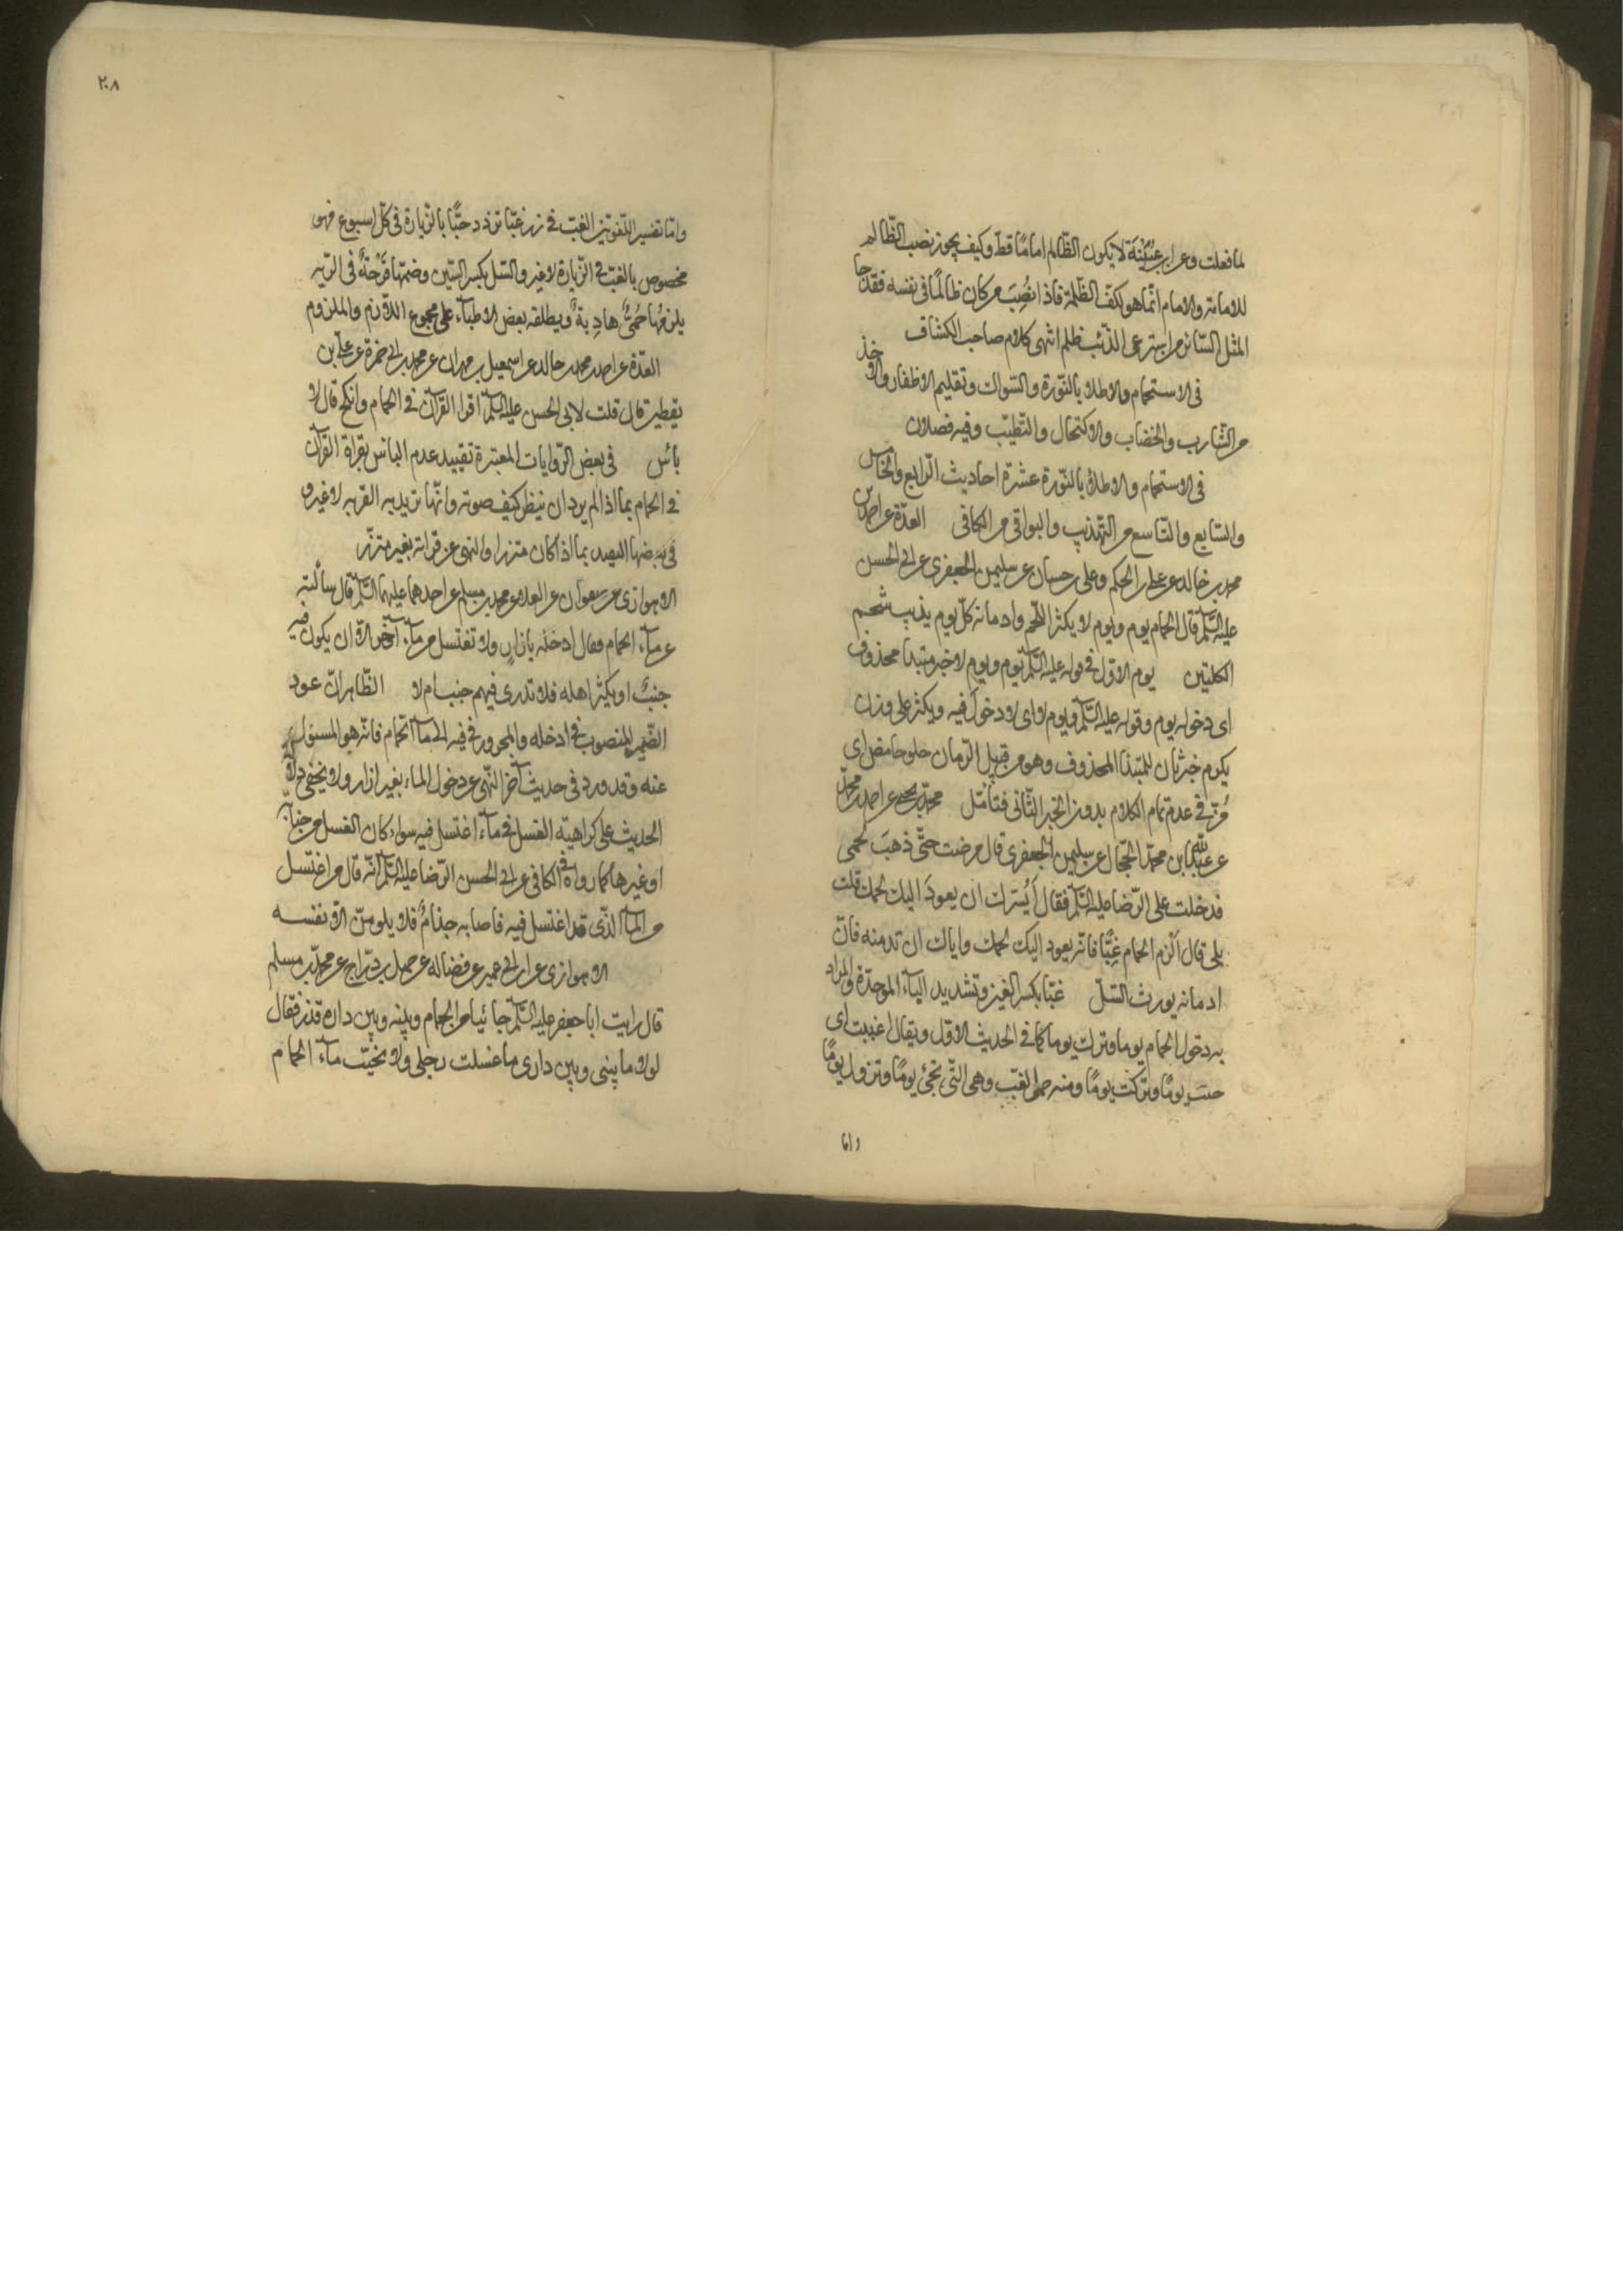 لما فعلت وعن ابن عيينة لا يكون الظالم اماما قط وكيف يجوز نصب الظالم
للامامة والامام انما هو لكف الظلمة فاذا نُصِبَ من كان ظالمًا فى نفسه فقد جا
المثل السائر من استرعى الذئب ظلم انتهى كلام صاحب الكشاف
فى الاستحمام والاطلاء بالنّورة والسّواك وتقليم الاظفار والاخذ
من الشّارب والخضاب والاكتحال والتّطيّب وفيه فصلان
فى الاستحمام والاطلاء بالنّورة عشرة احاديث الرّابع والخامس
والسّابع والتّاسع من التّهذيب والبواقى من الكافى العدّة عن احمد بن
محمد بن خالد عن على بن الحكم وعلى بن حسان عن سليمن الجعفرى عن ابى الحسن
عليه السّلم قال الحمام يوم ويوم لا يكثر اللّحم وادمانه كلّ يوم يذيب شحم
الكليتين يوم الاوّل فى قوله عليه السّلم يوم ويوم لا خبر مبتدا محذوف
اى دخوله يوم وقوله عليه السّلم ويوم لا اى لا دخول فيه ويكثر على وزن
يكرم خبر ثان للمبتدا المحذوف وهو من قبيل الرّمان حلو حامض اى
مُزّ فى عدم تمام الكلام بدون الخبر الثّانى فتأمّل محمّد بن يحيى عن احمد بن محمّد
عن عبدالله ابن محمّد الحجّال عن سليمن الجعفرى قال مرضت حتّى ذهبَ لحمى
فدخلت على الرّضا عليه السّلم فقال أيسُرّك ان يعودَ اليك لحمك قلت
بلى قال الزم الحمام غِبًّا فانّه يعود اليك لحمك واياك ان تدمنه فانّ
ادمانه يورث السّلّ غبّا بكسر الغين وتشديد الباء الموحّدة والمراد
به دخول الحمام يوما وترك يوما كما فى الحديث الاوّل ويقال اغببت اى
جئت يومًا وتركت يومًا ومنه حمى الغبّ وهى التّى تجئ يومًا وتزول يومًا
واما
٢٠٨
وامّا تفسير اللّغويّين الغبّ فى زر غبّا تزدد حبًّا بالزّيارة فى كلّ اسبوع فهو
مخصوص بالغبّ فى الزّيارة لا غير والسّل بكسر السّين وضمّها قَرْحَةٌ فى الرّيه
يلزمُها حُمىًّ هادِيةٌ ويطلقه بعض الاطبّاء على مجموع اللّازم والملزوم
العدّة عن احمد بن محمد بن خالد عن اسمعيل بن مهران عن محمد بن ابى حمزة عن على بن
يقطين قال قلت لابى الحسن عليه السّلم اقرا القرآن فى الحمام وانكح قال لا
بأس فى بعض الرّوايات المعتبرة تقييد عدم البأس بقراة القرآن
فى الحمام بما اذا لم يرد ان ينظر كيف صوته وانّما يريد به القربه لا غير و
فى بعضها التقييد بما اذا كان متزرا والنهى عن قراته بغير متزر
الاهوازى عن صفوان عن العلاء عن محمد بن مسلم عن احدهما عليهما السّلم قال سألته
عن ماء الحمام فقال ادخله بازار ولا تغتسل من ماء آخر الّا ان يكون فيه
جنبٌ او يكثر اهله فلا تدرى فيهم جنب ام لا الظّاهر انّ عود
الضّمير المنصوب فى ادخله والمجرور فى فيه الى ماء الحّمام فانّه هو المسئول
عنه وقد ورد فى حديث آخر النّهى عن دخول الماء بغير ازار ولا يخفى دلالة
الحديث على كراهية الغسل فى ماء اغتسل فيه سواء كان الغسل من جنابة
او غيرها كما رواه فى الكافى عن ابى الحسن الرّضا عليه السّلم انّه قال من اغتسل
من الماء الّذى قد اغتسل فيه فاصابه جذامٌ فلا يلومنّ الّا نفسه
الاهوازى عن ابن ابى عمير عن فضاله عن جميل بن درّاج عن محمّد بن مسلم
قال رايت ابا جعفر عليه السّلم جائيا من الحمام وبينه وبين داره قذر فقال
لولا ما بينى وبين دارى ما غسلت رجلى ولا نحّيت ماء الحمام